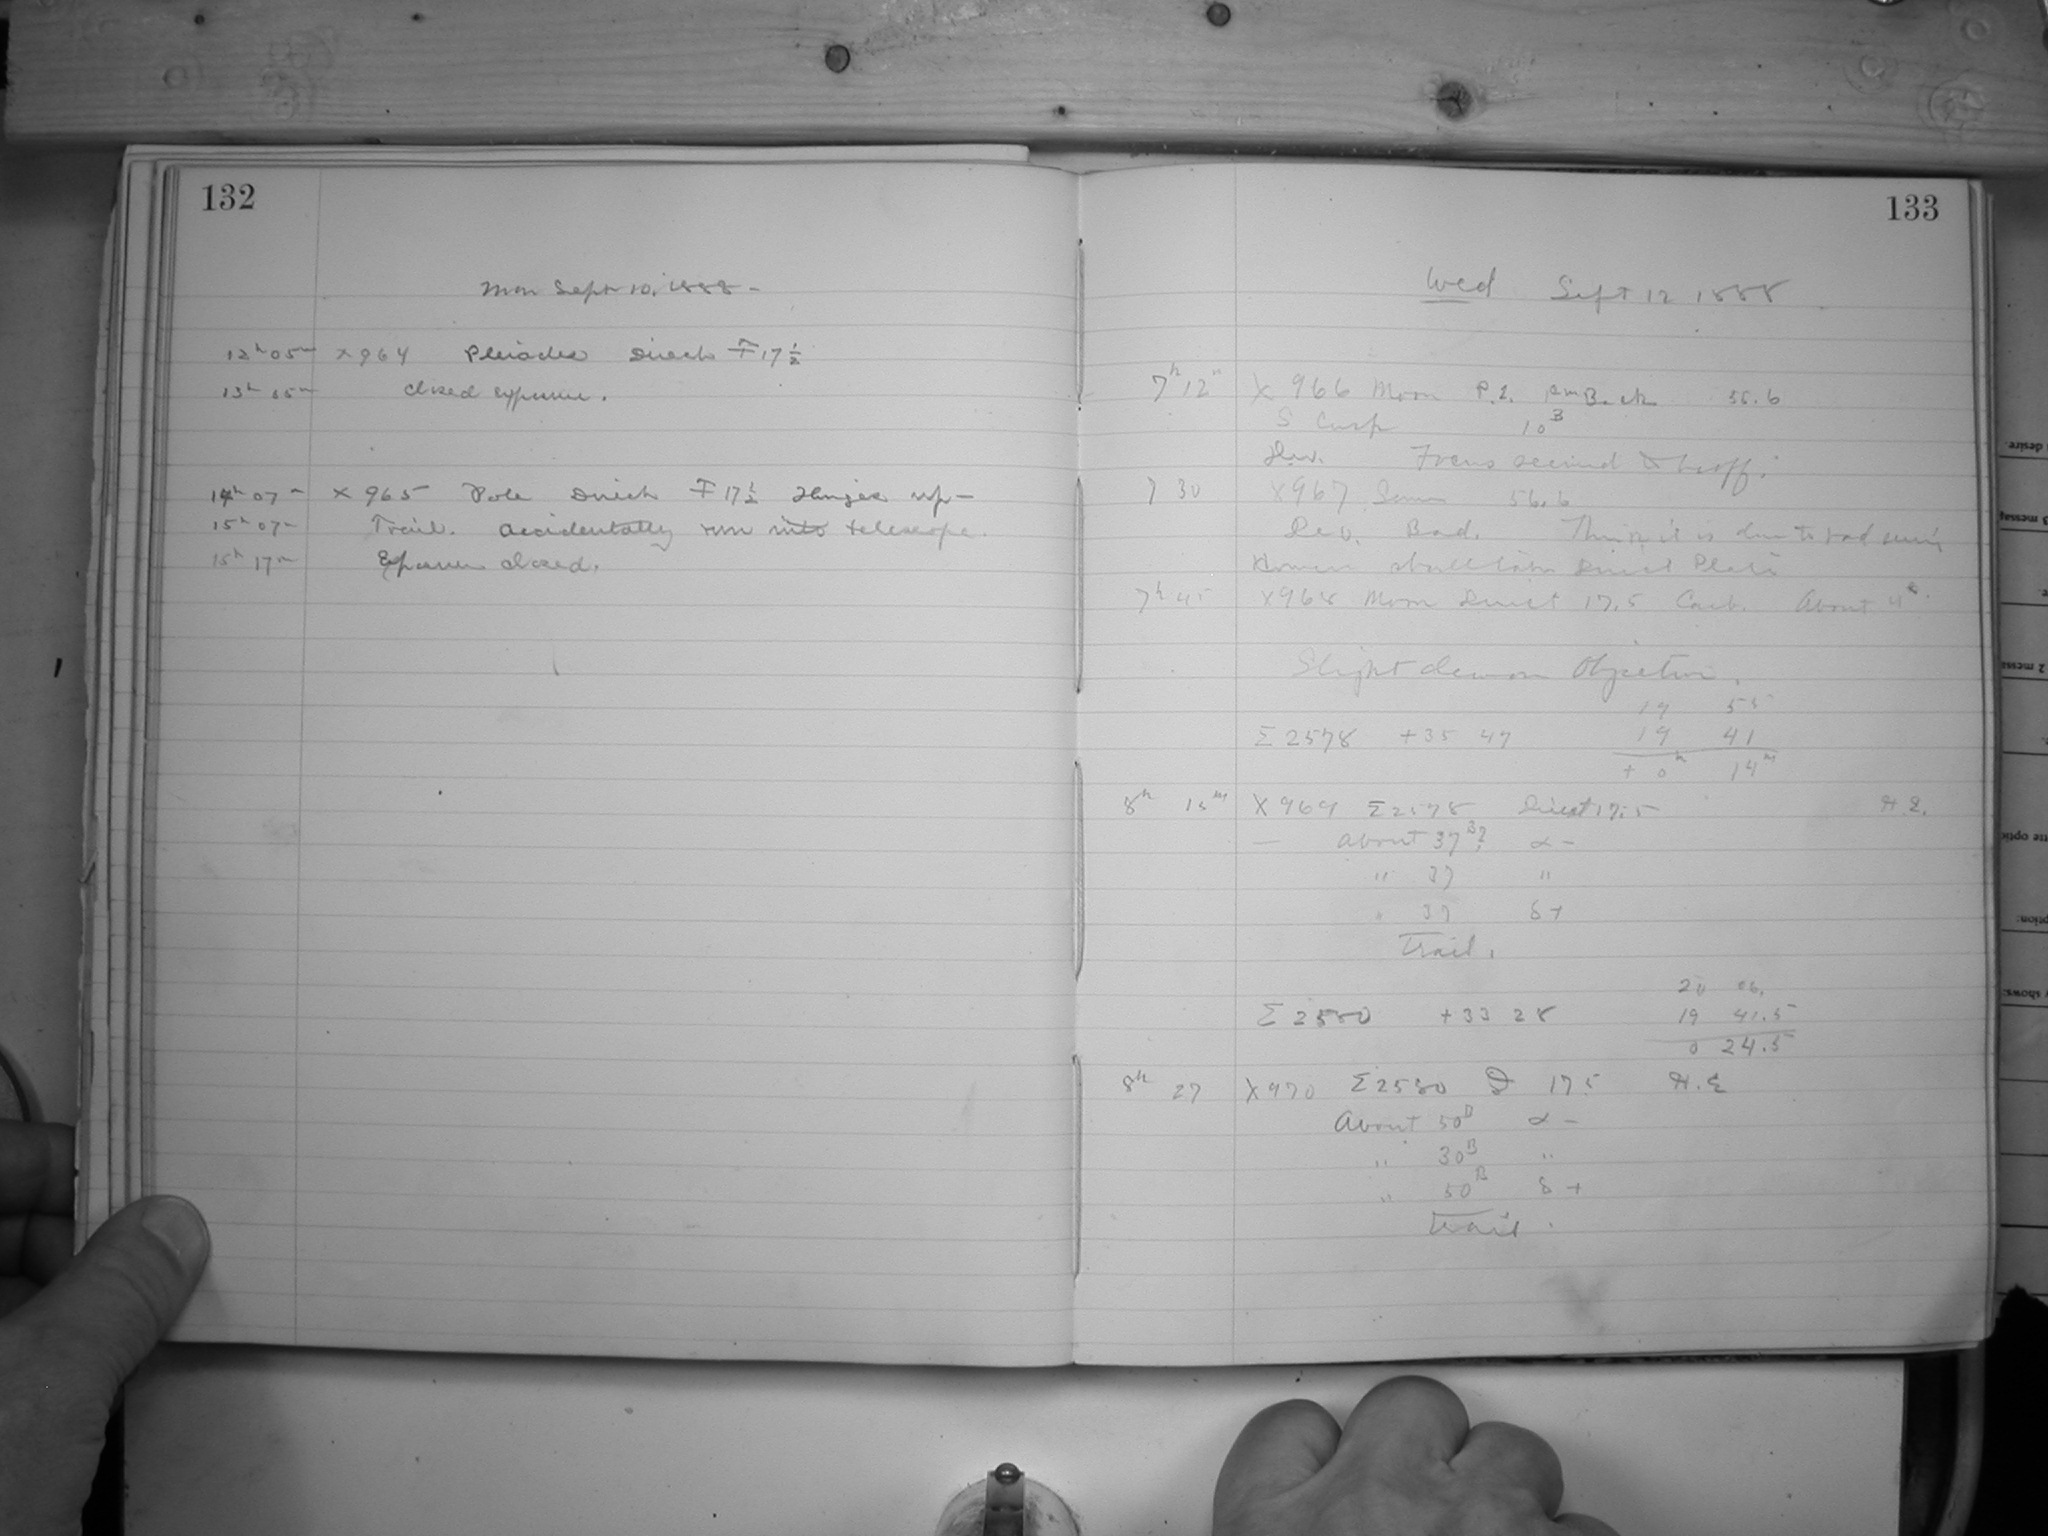 132
Mon Sept 10, 1888 -
12ʰ 05ᵐ x964 Pleiades Direct F 17 ½
13ʰ 05ᵐ closed exposure.
14ʰ 07ᵐ x 965 Pole Direct F 17 ½ Hinges up -
15ʰ 07ᵐ Trail. accidentally run into telescope.
15ʰ 17ᵐ Exposure closed.
133
Wed Sept 12 1888
7ʰ 12ᵐ X 966 Moon P.L. Back 55.6
S Cusp 10ᴮ
Dev. Focus second
7 30 X967 Same 56.6
Dev. Bad. Think it is due to bad seeing
However shall take Direct Plate
7ʰ 45 X968 Moon Direct 17.5 About 4ˢ.
Slight dew on Objective.
19 55
Σ 2578 +35 47 19 41
+ 0ʰ 14ᵐ
8ʰ 15ᵐ X969 Σ2578 Direct 17.5 H.E.
— About 37ᴮ? α -
" 37 "
" 37 δ +
Trail.
20 06.
Σ 2580 + 33 28 19 41.5
0 24.5
8ʰ 27 X970 Σ2580 D 17.5 H.E
About 50ᴮ α -
" 30ᴮ "
" 50ᴮ δ +
Trail.